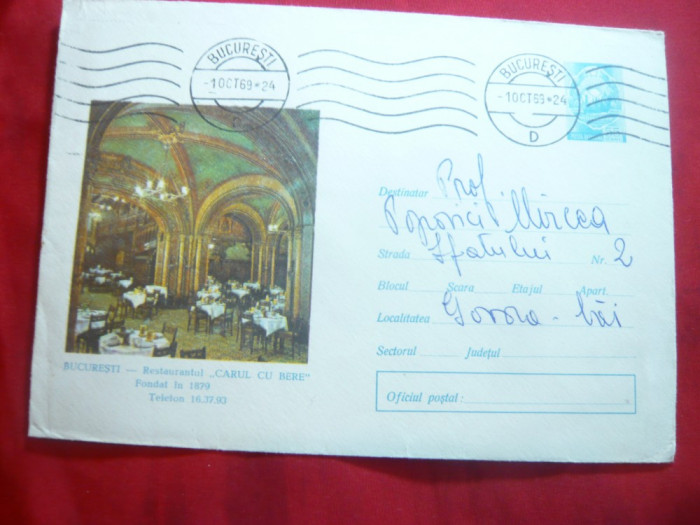 BUCUREȘTI
-1OCT69*24
D
BUCUREȘTI
-1OCT69*24
D
BUCUREȘTI — Restaurantul „CARUL CU BERE”
Fondat în 1879
Telefon 16.37.93
Destinatar Prof
Popovici Mircea
Strada Sfatului Nr. 2
Blocul Scara Etajul Apart.
Localitatea Govora - băi
Sectorul Județul
Oficiul poștal: